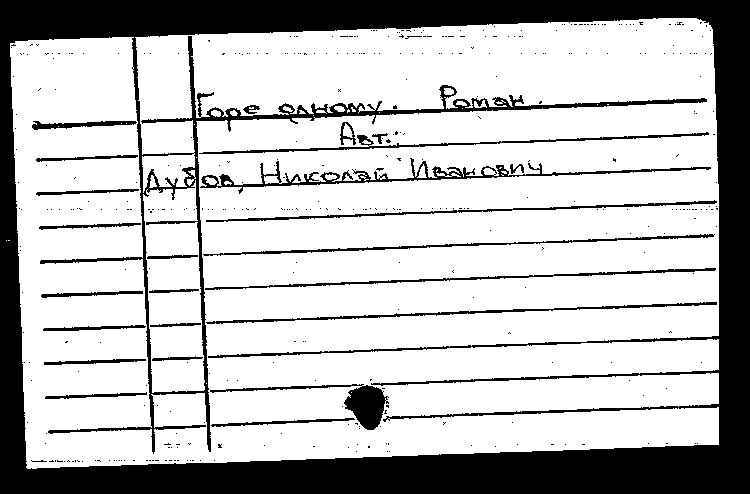 Горе одному. Роман.
Авт.:
Дубов, Николай Иванович.